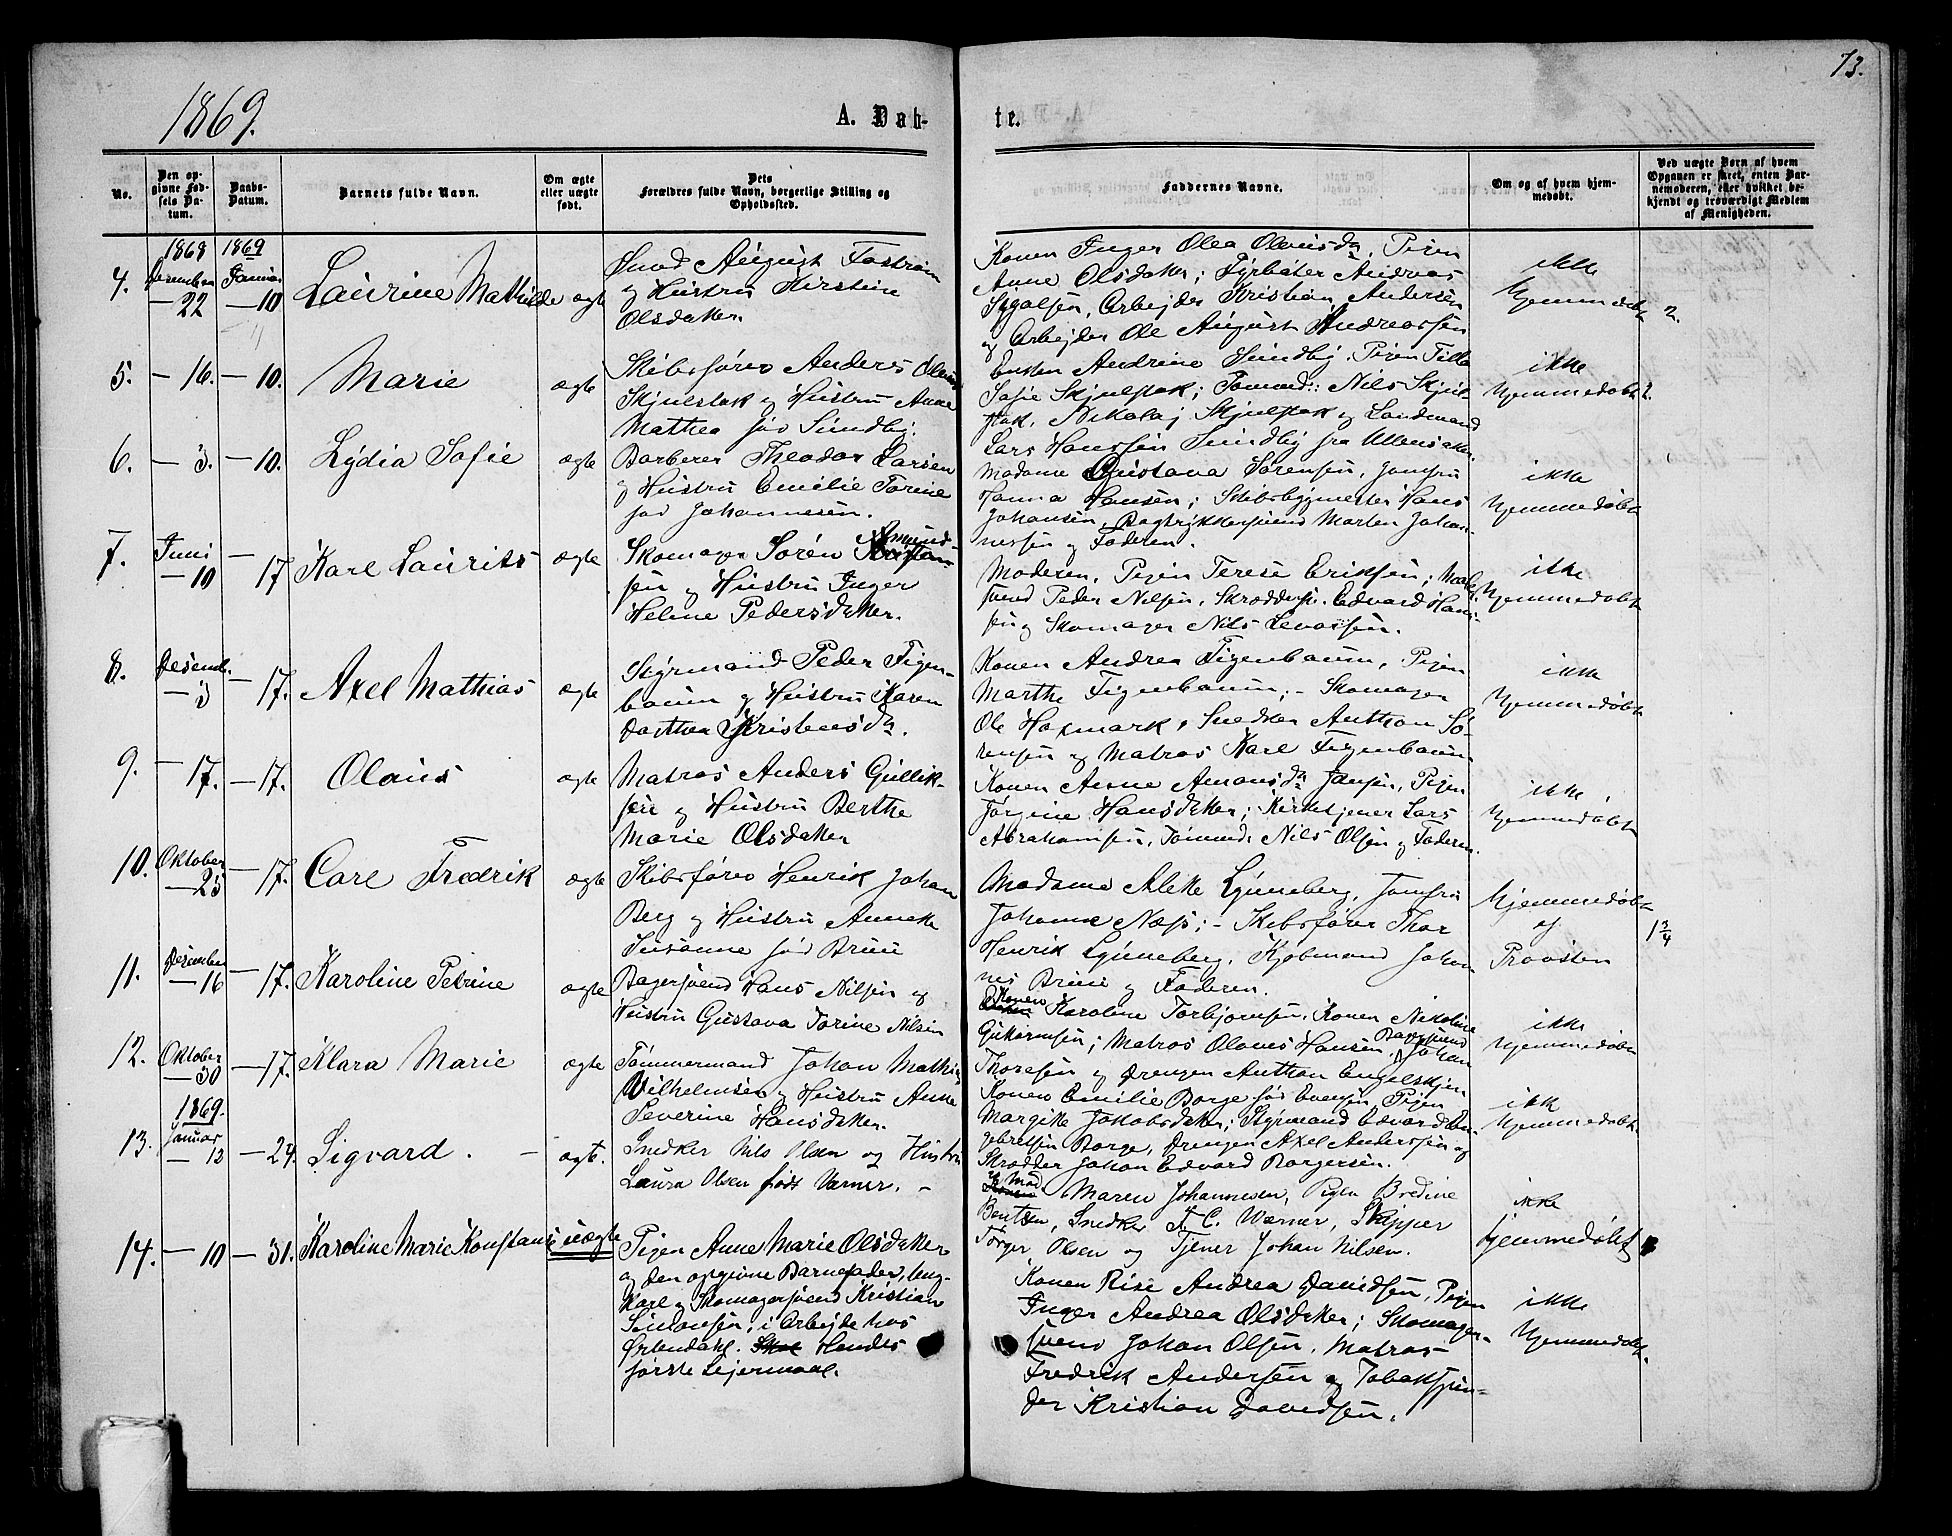 73.
1869.
A. Dab-
te.
No.
Den op-
givne Fød-
sels Da-
tum.
Daabs-
Datum.
Barnets fulde Navn.
Om ægte
eller uægte
født.
Dets
Forældres fulde Navn, borgerlige Stilling og
Opholdssted.
Faddernes Navne.
Om og af hvem hjem-
medøbt.
Ved uægte Børn af hvem
Opgaven er skeet, enten Bar-
nemoderen, eller hvilket be-
kjendt og troværdigt Medlem
af Menigheden.
1868
1869
4.
Desember
— 22
Januar
— 10
Laurine Mathilde
ægte
Smed August Fostrøm
og Hustru Kirstine
Olsdatter
Konen Inger Olea Olausdtr, Pigen
Anne Olsdatter; Fyrbøter Andreas
Arbejder Kristian Andersen
og Arbejder Ole August Andreassen
ikke
hjemmedøbt
2.
5.
— 16.
— 10.
Marie
ægte
Skibsfører Anders
og Hustru Anne
Mathea fød Sundby.
Enken Andrine Sundby, Pigen
Sofie Skjulstok; Tømmerm: Nils Skjul-
stok, Nikolaj Skjulstok og Landmand
Lars Hanssen Sundby fra Ullensaker
ikke
hjemmedøbt
2.
6.
— 3.
— 10.
Lydia Sofie
ægte
Barberer Theodor Larsen
og Hustru Emilie Torine
fød Johannesen.
Madame Gustava Sørensen, Jomfru
Hanna Hansen; Skibsbygmester Hans
Johansen, Bogtrykkersvend Morten Johan-
nessen og Faderen.
ikke
hjemmedøbt
7.
Juni
— 10
— 17
Karl Laurits
ægte
Skomager Søren Amund-
sen og Hustru Inger
Helene Pedersdatter.
Moderen, Pigen Terese Eriksen; Maler-
svend Peder Nilsen, Skræddersv. Edvard Han-
sen og Skomager Nils
ikke
hjemmedøbt
8.
Desemb.
— 3
— 17.
Axel Mathias
ægte
Styrmand Peder Figen-
baum og Hustru Karen
Dorthea Kristensdtr.
Konen Andrea Figenbaum, Pigen
Marthe Figenbaum; - Skomager
Ole Hoxmark, Snedker Anthon Sø-
rensen og Matros Karl Figenbaum
ikke
hjemmedøbt
9.
— 17.
— 17.
Olaus
ægte
Matros Anders Gullik-
sen og Hustru Berthe
Marie Olsdatter
Konen Anne Amansdtr Jansen, Pigen
Jørgine Hansdatter; Kirketjener Lars
Abrahamsen, Tømmerm. Nils Olsen og Faderen.
ikke
hjemmedøbt
10.
Oktober
— 25
— 17.
Carl Fredrik
ægte
Skibsfører Henrik Johan
Berg og Hustru Anneke
Susanne fød Bruu
Madame Aleke Lyuneberg, Jomfru
Johanne Næss; - Skibsfører Thor
Henrik Lyuneberg, Kjøbmand Johan-
nes Bruu og Faderen.
hjemmedøbt
af
Provsten
1 3/4
11.
Desember
— 16
— 17.
Karoline Petrine
ægte
Bagersvend Hans Nilsen og
Hustru Gustava Torine Nilsen
Konen Karoline Torbjørnsen, Konen Nikoline
Matros Olaves Hansen, Bagersvend Johan
Thoresen og Drengen Anthon Engelskjen
ikke
hjemmedøbt
12.
Oktober
— 30
— 17.
Klara Marie
ægte
Tømmermand Johan Mathias
Vilhelmsen og Hustru Anne
Severine Hansdatter.
Konen Emilie Borge fød Evensen, Pigen
Margite Jakobsdatter; Styrmand Edvard En-
gebretsen Borge, Drengen Axel Anderssen og
Skrædder Johan Edvard Borgersen.
ikke
hjemmedøbt
1869.
13.
Januar
— 12
— 24.
Sigvard.
ægte.
Snedker Nils Olsen og Hustru
Laura Olsen født Værner. -
Mad. Maren Johannesen, Pigen Bredine
Bentsen, Snedker F. C. Wærner, Skipper
Torger Olsen og Tjener Johan Nilsen.
ikke
hjemmedøbt
14.
— 10
— 31.
Karoline Marie Konstanse
uægte
Pigen Anne Marie Olsdatter
og den opgivne Barnefader, Ung-
karl og Skomagersvend Kristian
Simonsen, i Arbejde hos
Ørbendahl. Hendes
første Lejermaal.
Konen Rise Andrea Davidsen, Pigen
Inger Andrea Olsdatter; Skomager-
svend Johan Olsen, Matros
Fredrik Andersen og Tobakspin-
der Kristian Davidsen.
ikke
hjemmedøbt.